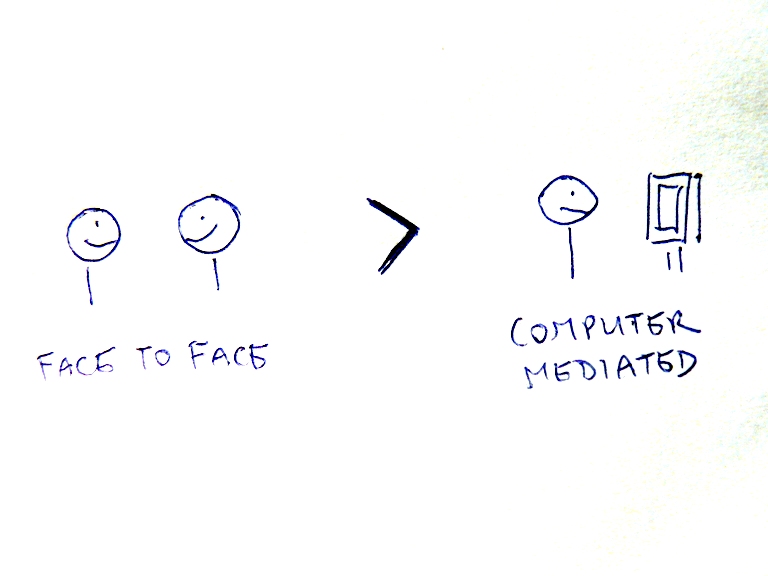 FACE TO FACE
>
COMPUTER
MEDIATED